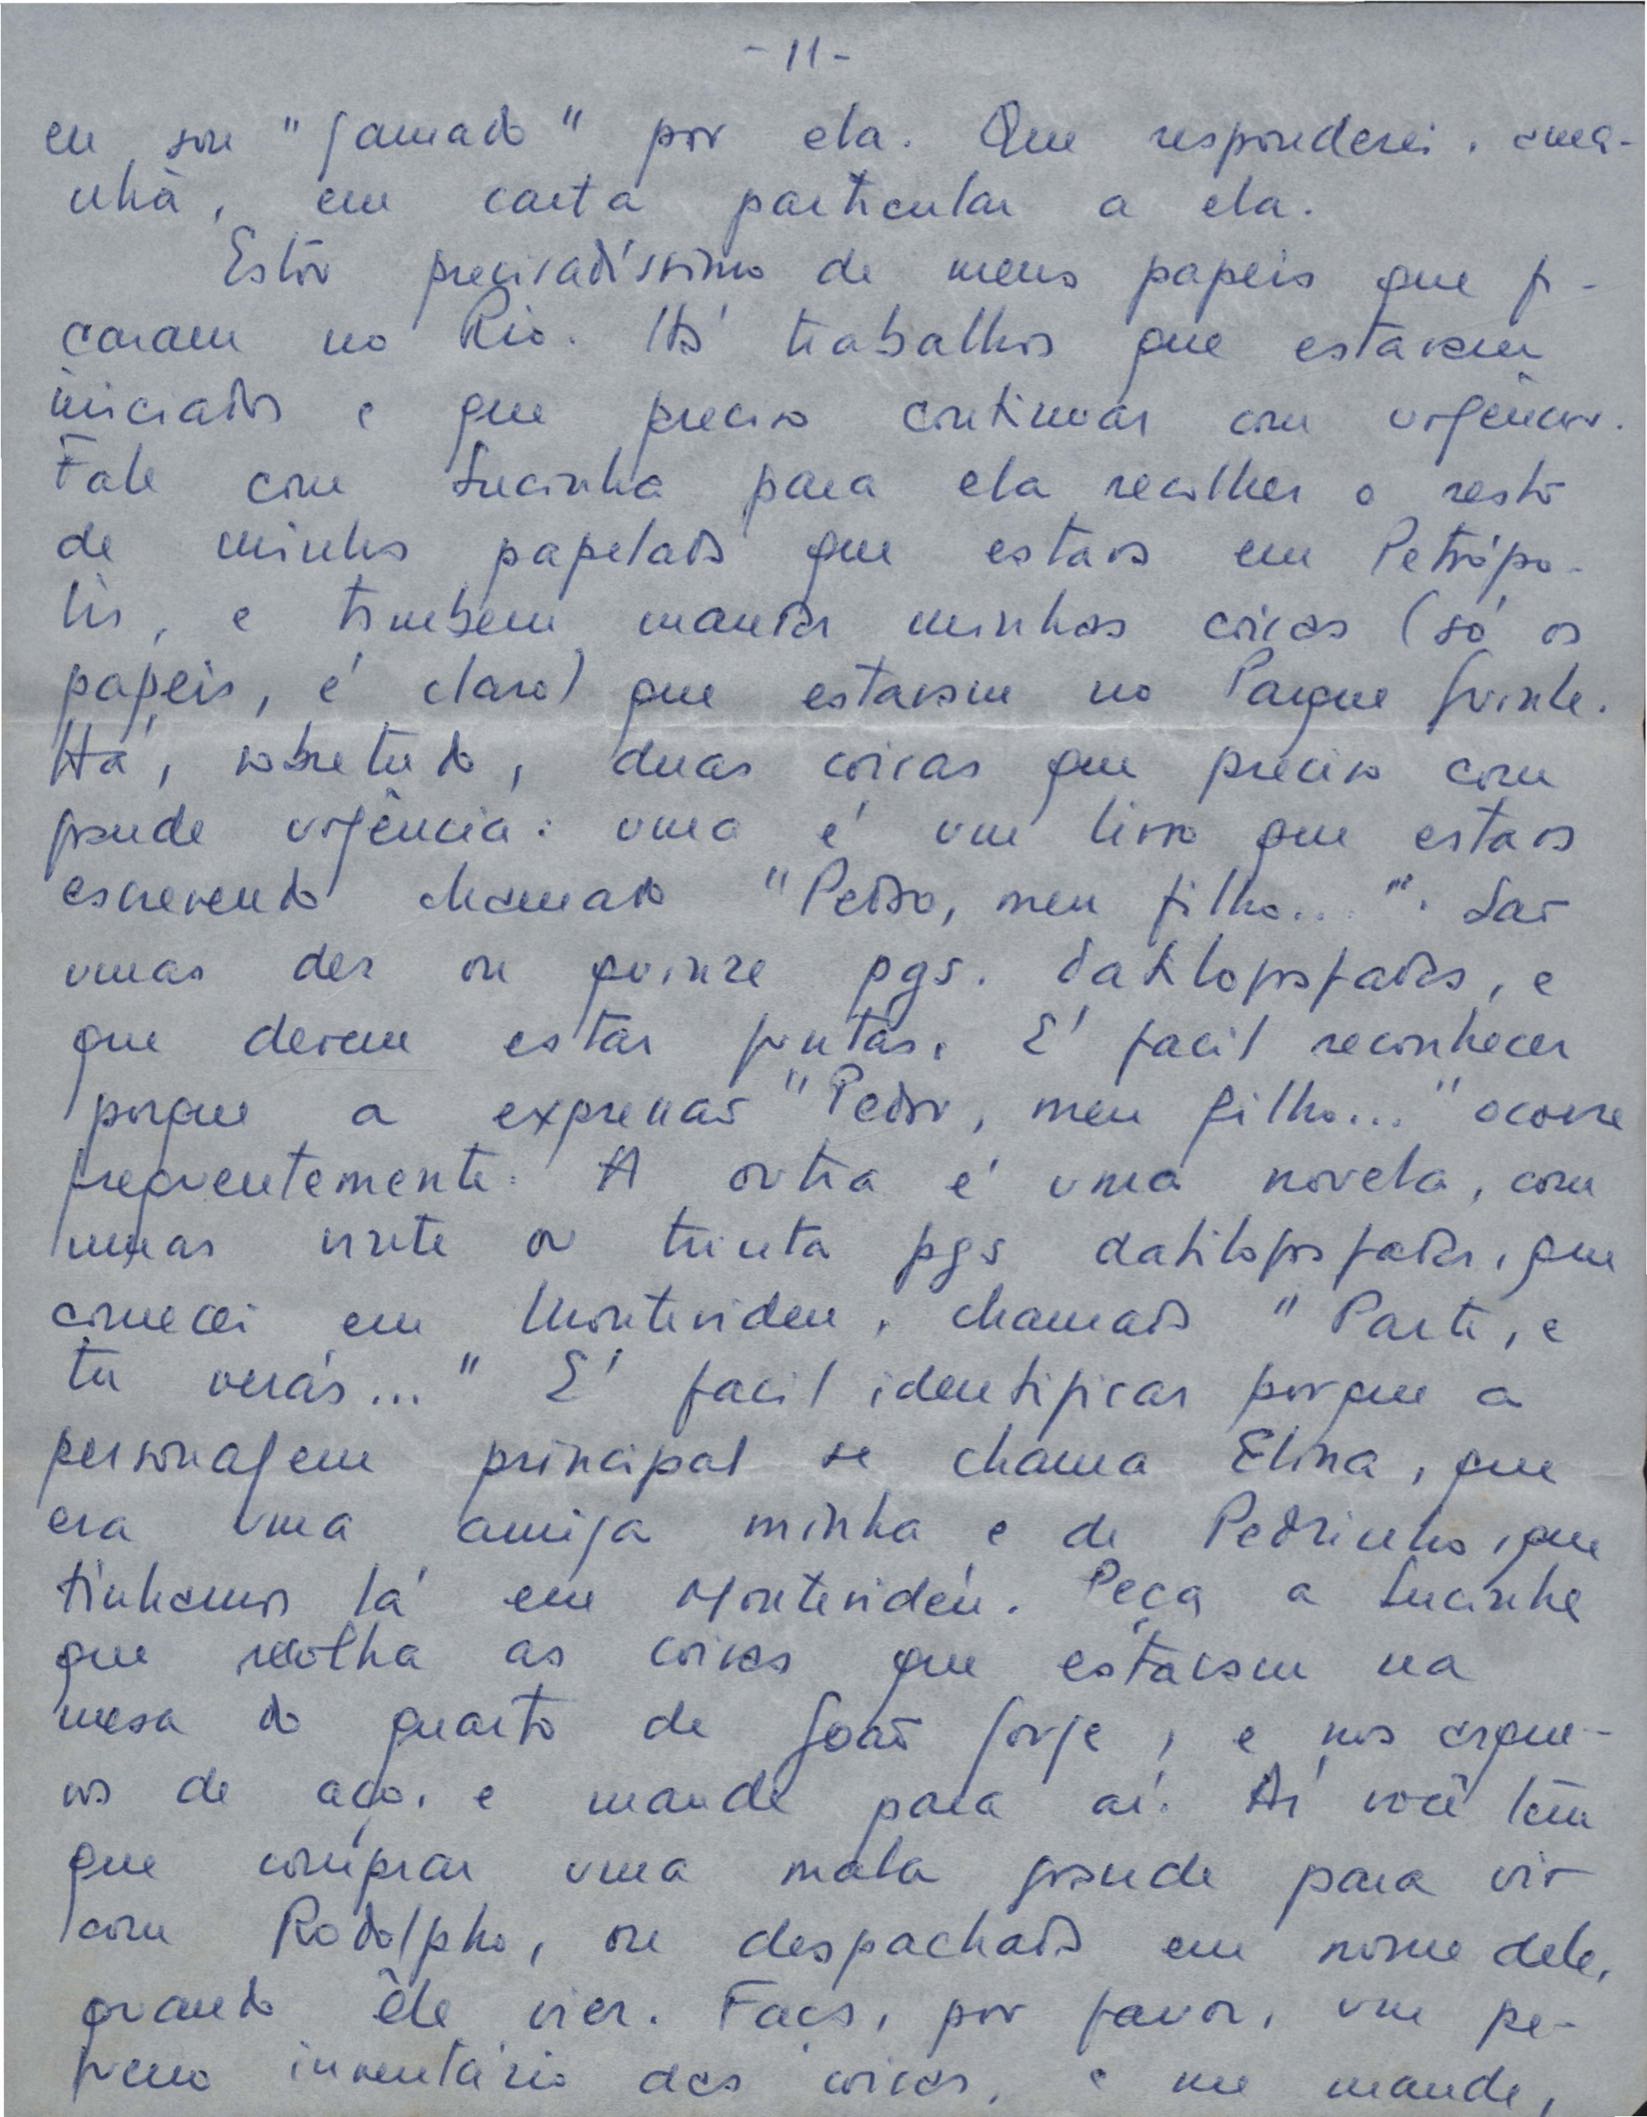 - 11 -
eu sou "gamado" por ela. Que responderei, ama-
nhã, em carta particular a ela.
Estou precisadíssimo de meus papeis que fi-
caram no Rio. Há trabalhos que estavam
iniciados e que preciso continuar com urgência.
Fale com Lucinha para ela recolher o resto
de minha papelada que estava em Petrópo-
lis, e tambem mandar minhas coisas (só os
papéis, é claro) que estavam no Parque Guinle.
Há, sobretudo, duas coisas que preciso com
grande urgência: uma é um livro que estava
escrevendo chamado "Pedro, meu filho...". São
umas dez ou quinze pgs. datilografadas, e
que devem estar juntas. É facil reconhecer
porque a expressão "Pedro, meu filho..." ocorre
frequentemente. A outra é uma novela, com
umas vinte ou trinta pgs datilografadas, que
comecei em Montevideu, chamada "Parti, e
tu verás..." É facil identificar porque a
personagem principal se chama Elina, que
era uma amiga minha e de Pedrinho, que
tinhamos lá em Montevidéu. Peça a Lucinha
que recolha as coisas que estavam na
mesa do quarto de João Jorge, e nos arqui-
vos de aço, e mande para aí. Aí você tem
que comprar uma mala grande para vir
com Rodolpho, ou despachada em nome dele,
quando êle vier. Faça, por favor, um pe-
queno inventário das coisas, e me mande,